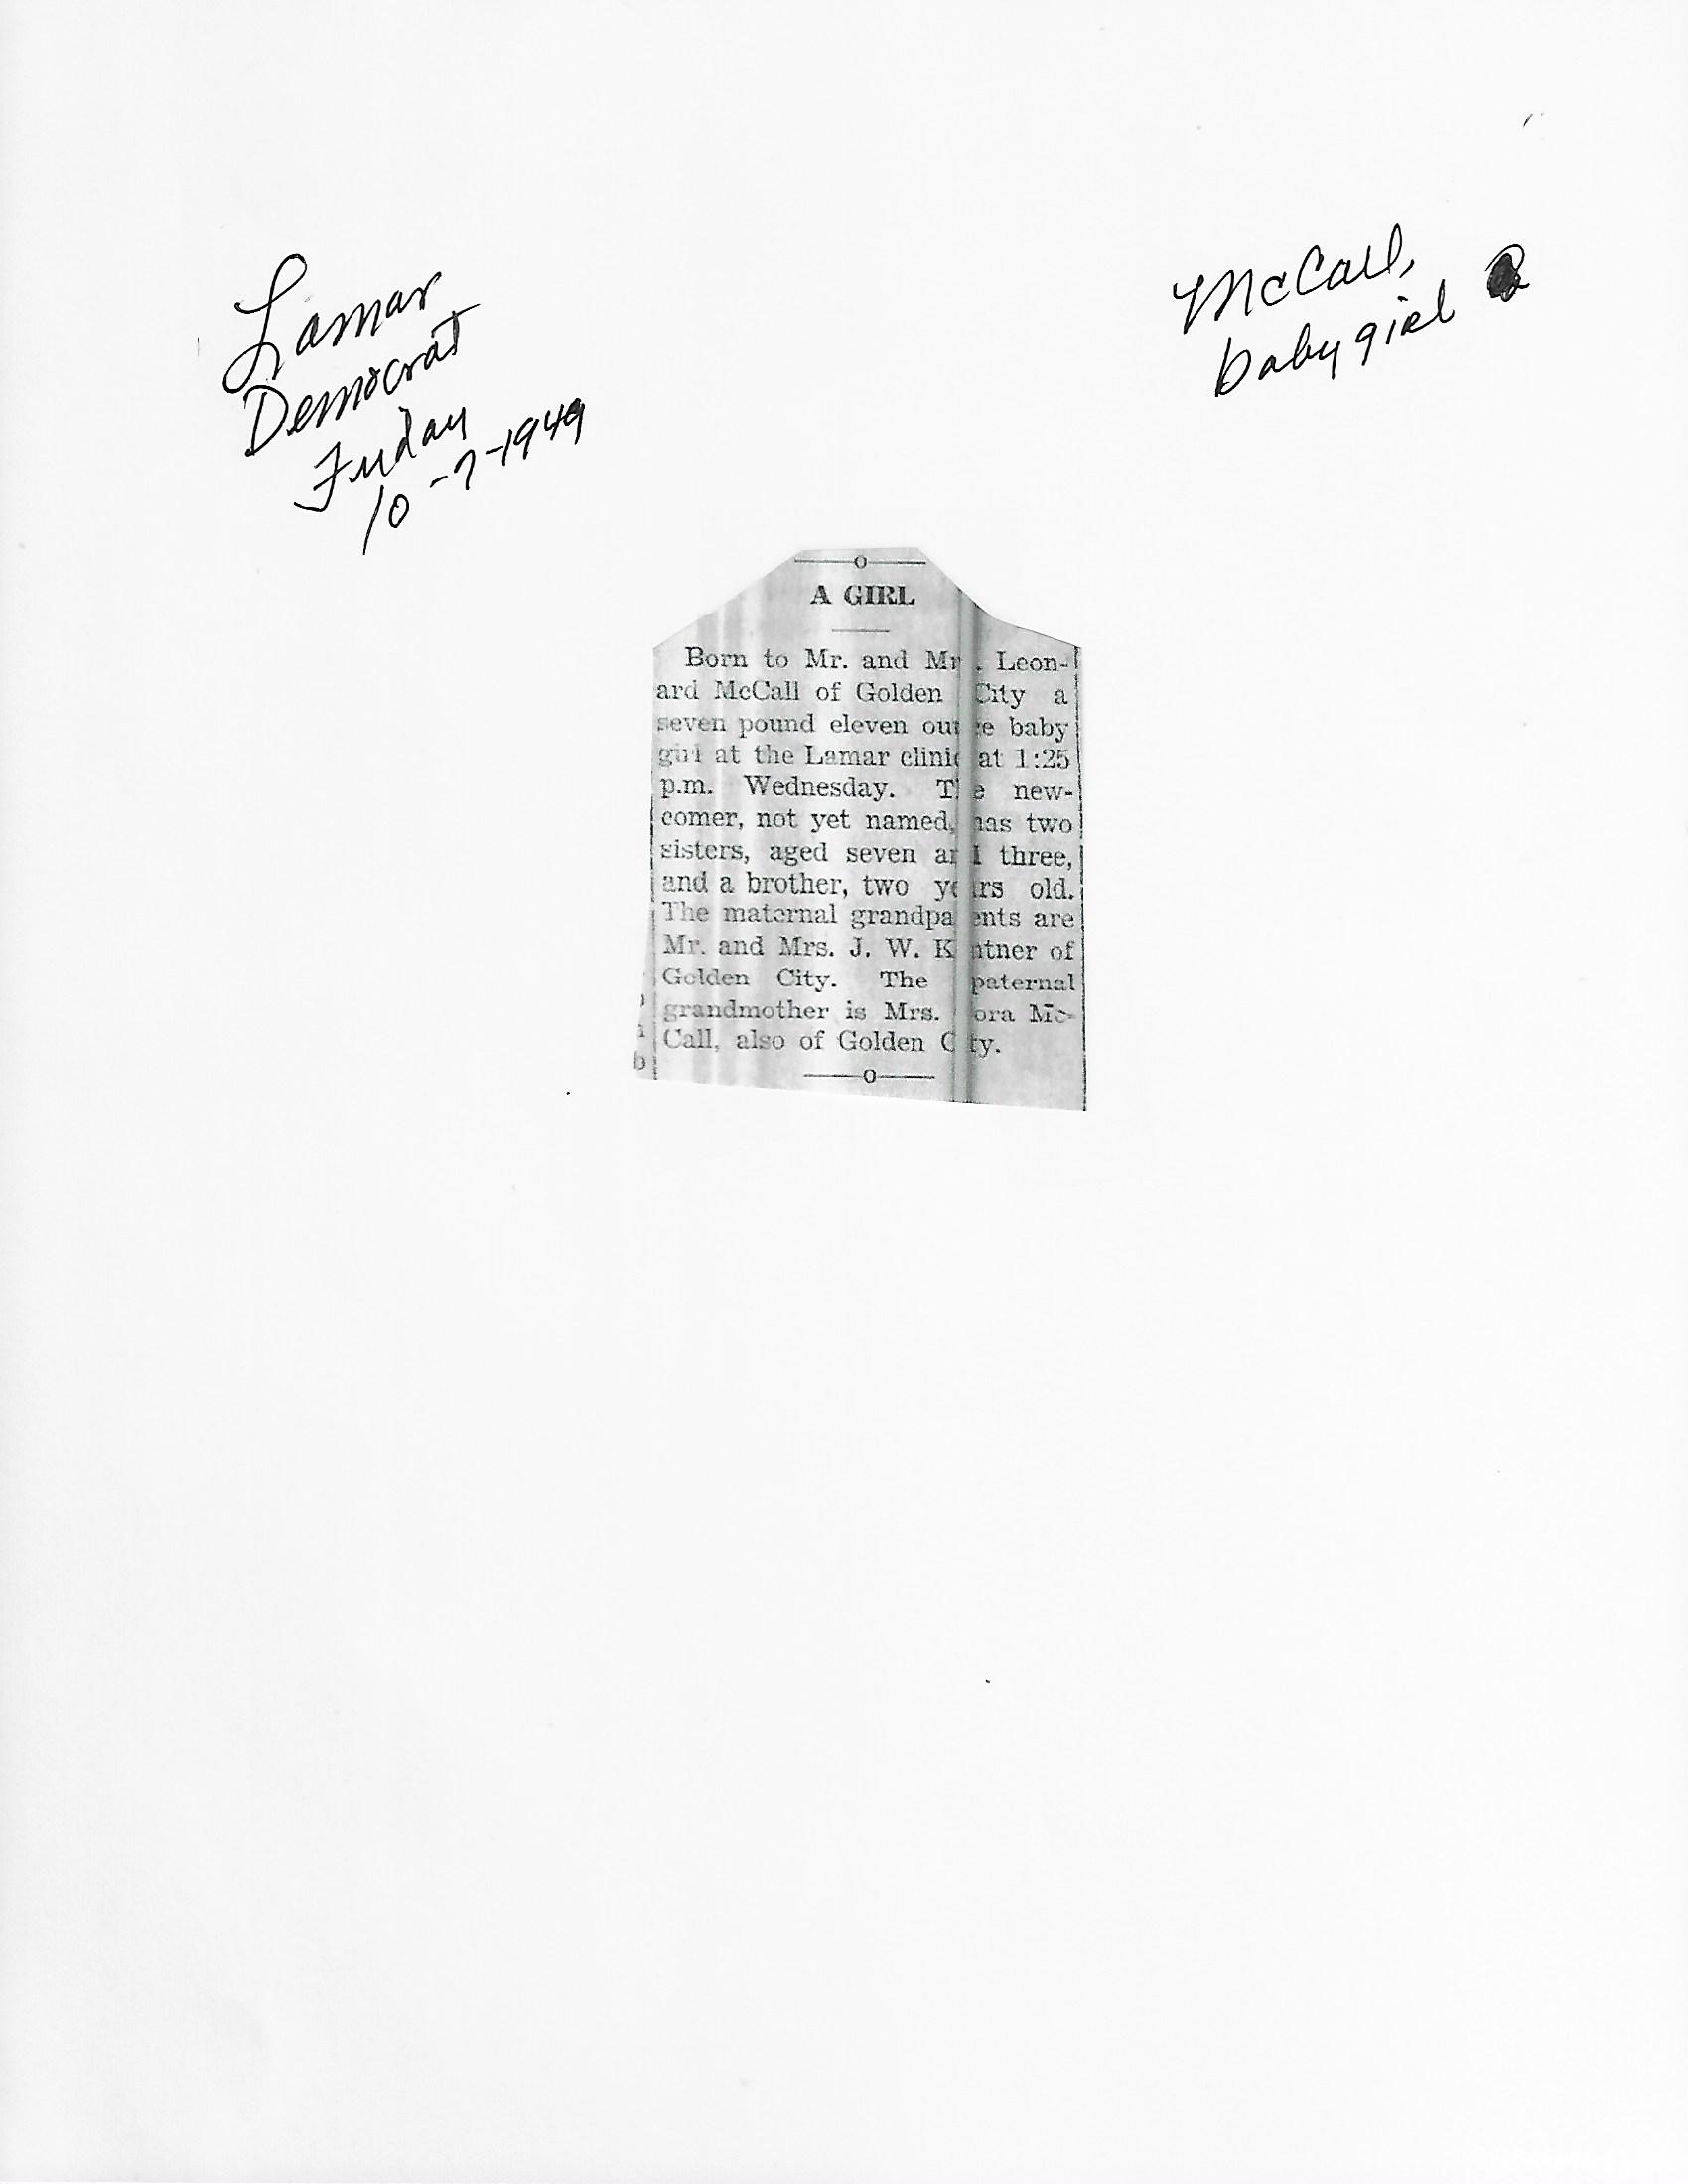 Lamar
Democrat
Friday
10-7-1949
McCall,
baby girl
A GIRL
Born to Mr. and Mr. Leon-
ard McCall of Golden City a
seven pound eleven ounce baby
girl at the Lamar clinic at 1:25
p.m. Wednesday. The new-
comer, not yet named, has two
sisters, aged seven and three,
and a brother, two years old.
The maternal grandparents are
Mr. and Mrs. J. W. of
Golden City. The paternal
grandmother is Mrs. Mc-
Call, also of Golden City.